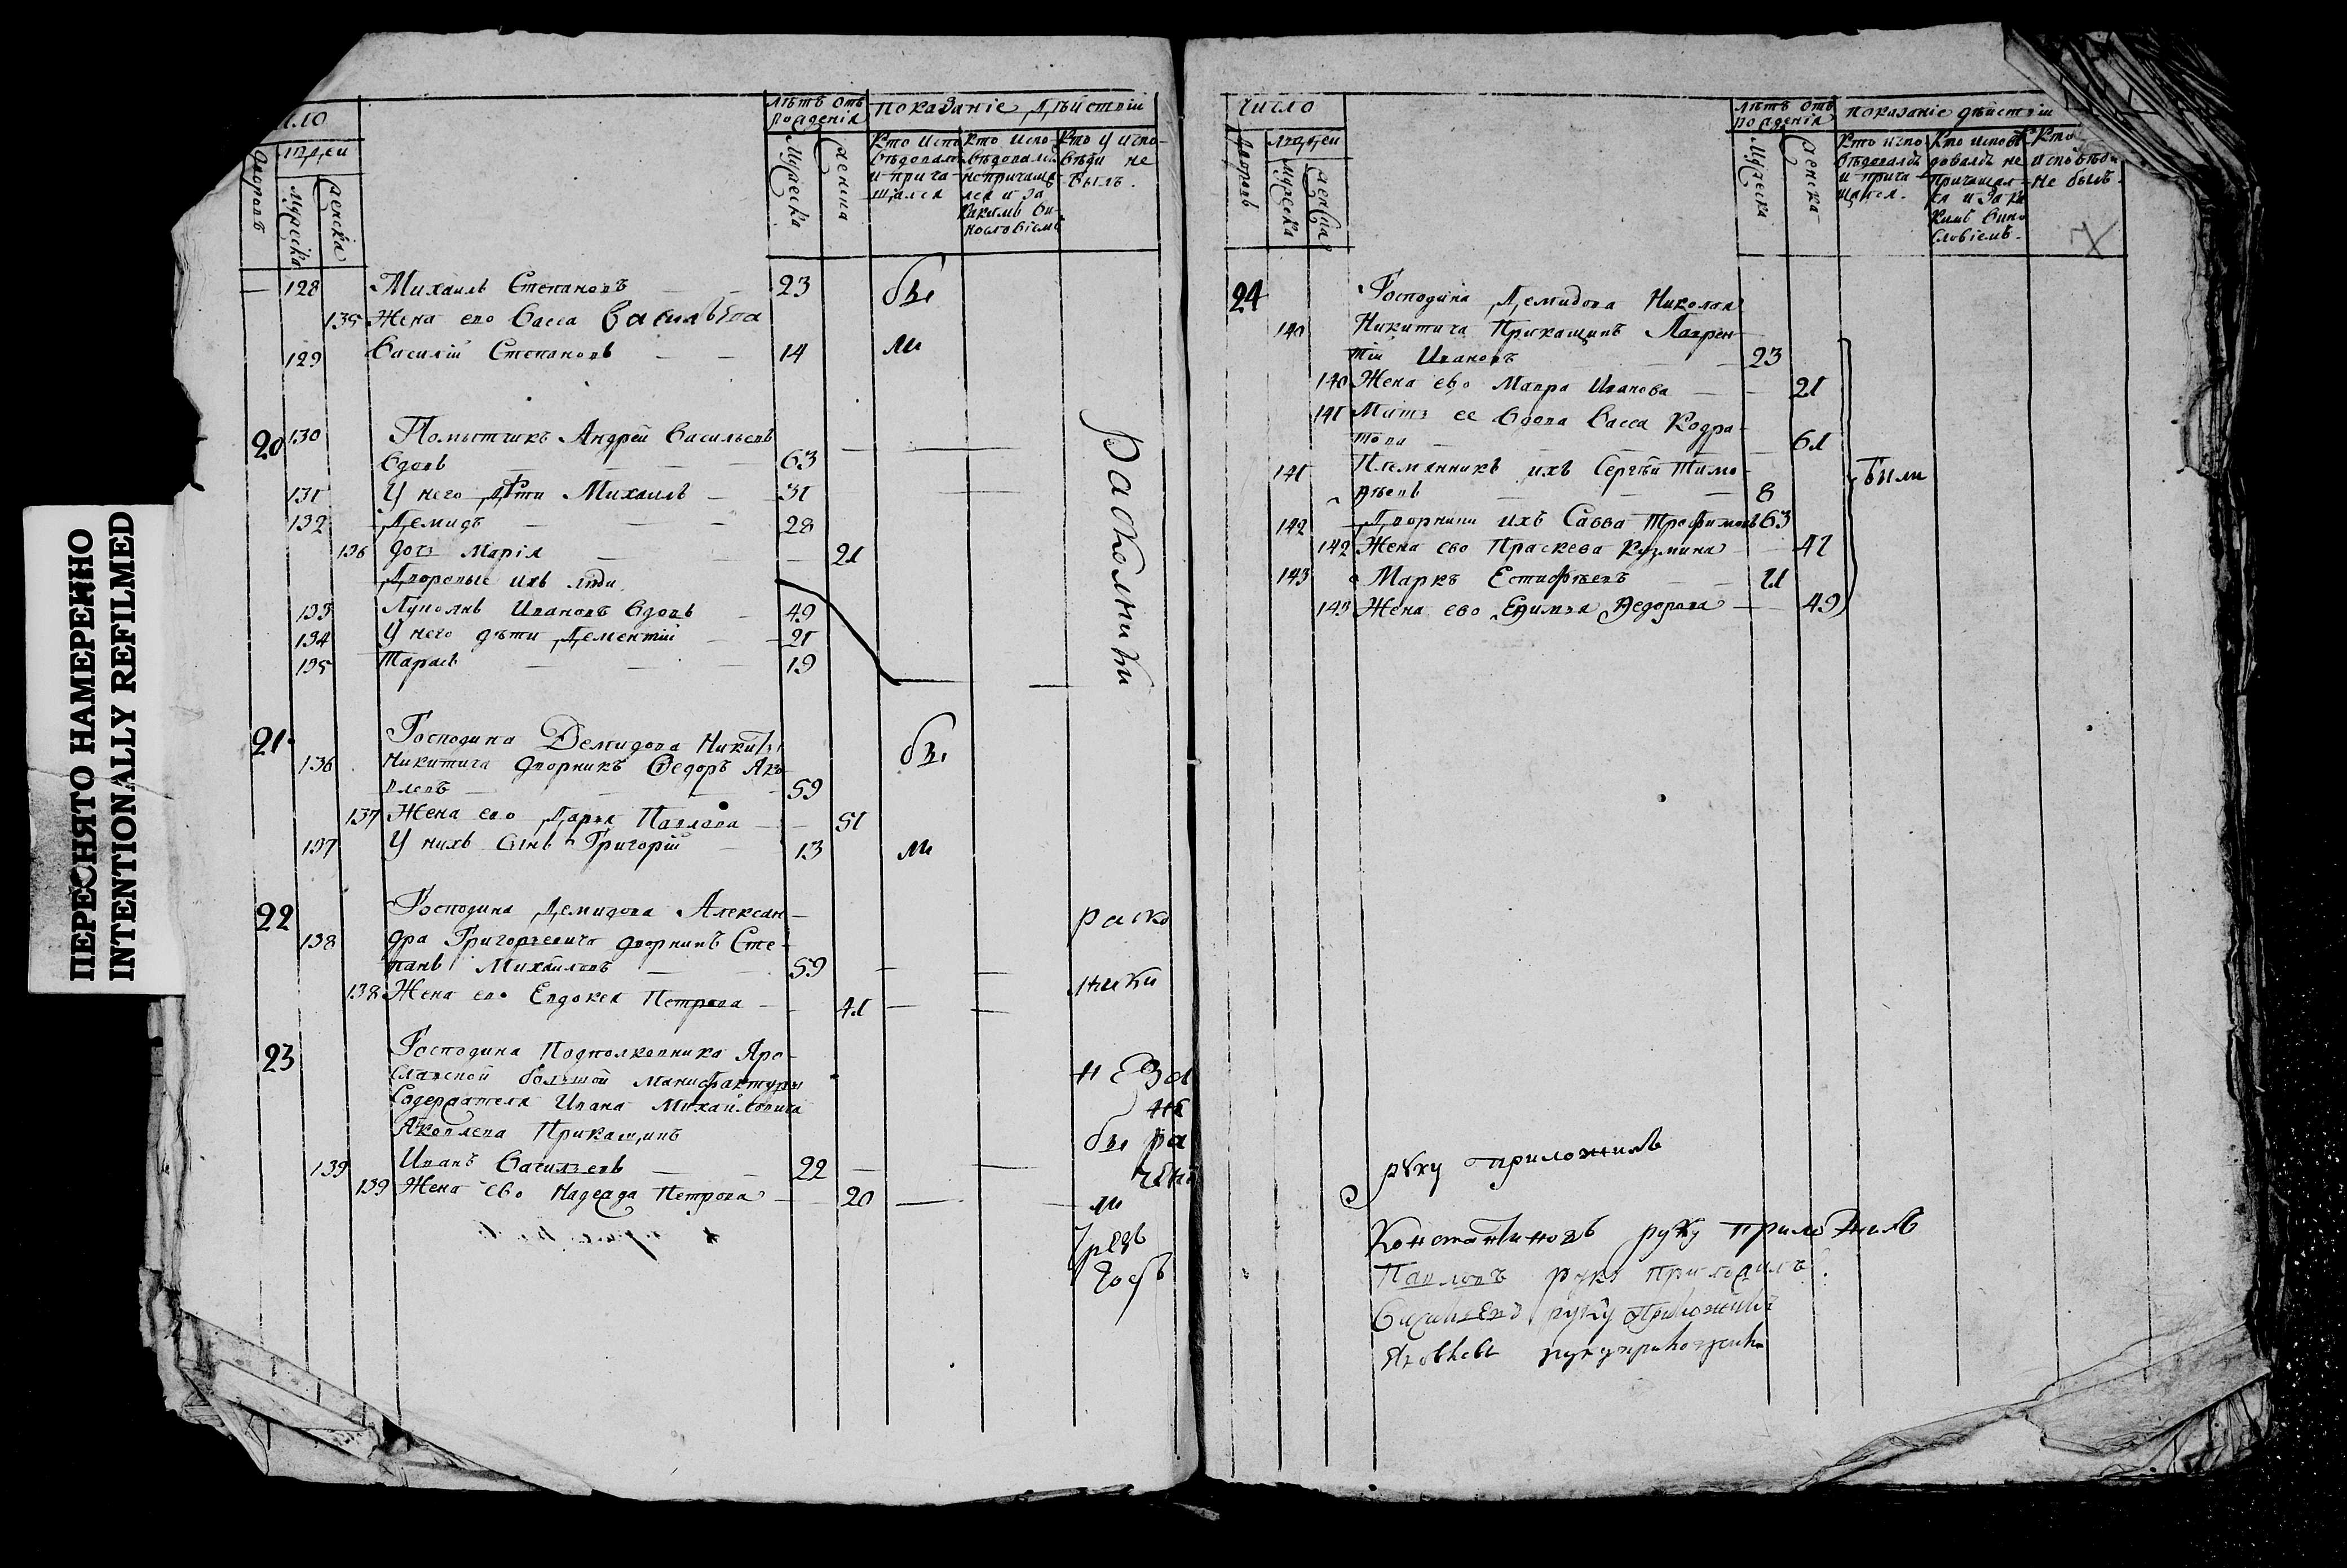 ПЕРЕСНЯТО НАМЕРЕННО
INTENTIONALLY REFILMED
число
Дворовъ
людей
мужеска
женска
лѣтъ отъ
рожденія
мужеска
женска
показаніе дѣйствіи
Кто испо
вѣдовалъ
и прича
щался
Кто испо
вѣдовалъ
непричаща
лся и за
какимъ ви
нословіемъ
Кто у испо-
вѣди не
былъ.
128 Михаилъ Степановъ 23 бы
135 Жена ево Васса Васильева
129 Василій Степановъ 14 ли
20 130 Помытчикъ Андрей Васильевъ
вдовъ 63
131 У него дѣти Михаилъ 31
132 Демидъ 28
136 дочь Марія 21
Дворовые ихъ люди
133 Лупоянъ Ивановъ вдовъ 49
134 У него дѣти Дементій 21
135 Тарасъ 19
раскольники
21 Господина Демидова Никиты
136 Никитича дворникъ Ѳедоръ Яко
влевъ 59 бы
137 Жена ево Дарья Павлова 51
137 У нихъ сынъ Григорій 13 ли
22 Господина Демидова Алексан
138 дра Григорьевича дворникъ Сте
панъ Михайловъ 59
138 Жена ево Евдокея Петрова 41
раско
льники
23 Господина Подполковника Яро
славской большой мануфактуры
Содержателя Ивана Михайловича
Яковлева Прикащикъ
139 Иванъ Васильевъ 22
139 Жена ево Надежда Петрова 20
число
Дворовъ
людей
мужеска
женска
лѣтъ отъ
рожденія
мужеска
женска
показаніе дѣйствіи
Кто испо
вѣдовалъ
и прича
щался.
Кто исповѣ
довалъ не
причащал
ся и за ка
кимъ вино
словіемъ.
Кто
исповѣди
не былъ.
24 Господина Демидова Николая
140 Никитича Прикащикъ Лаврен
тій Ивановъ 23
140 Жена ево Мавра Иванова 21
141 Мать ее вдова Васса Кодра
това 61
141 Племянникъ ихъ Сергѣй Тимо
ѳѣевъ 8
142 Дворники ихъ Савва Трофимовъ 63
142 Жена ево Праскева Кузмина 47
143 Маркъ Естифѣевъ 21
143 Жена ево Ѳедорова 49
были
руку приложилъ
Константиновъ руку приложилъ
Павловъ руку приложилъ.
Васильевъ руку приложилъ
Яковлевъ руку приложилъ